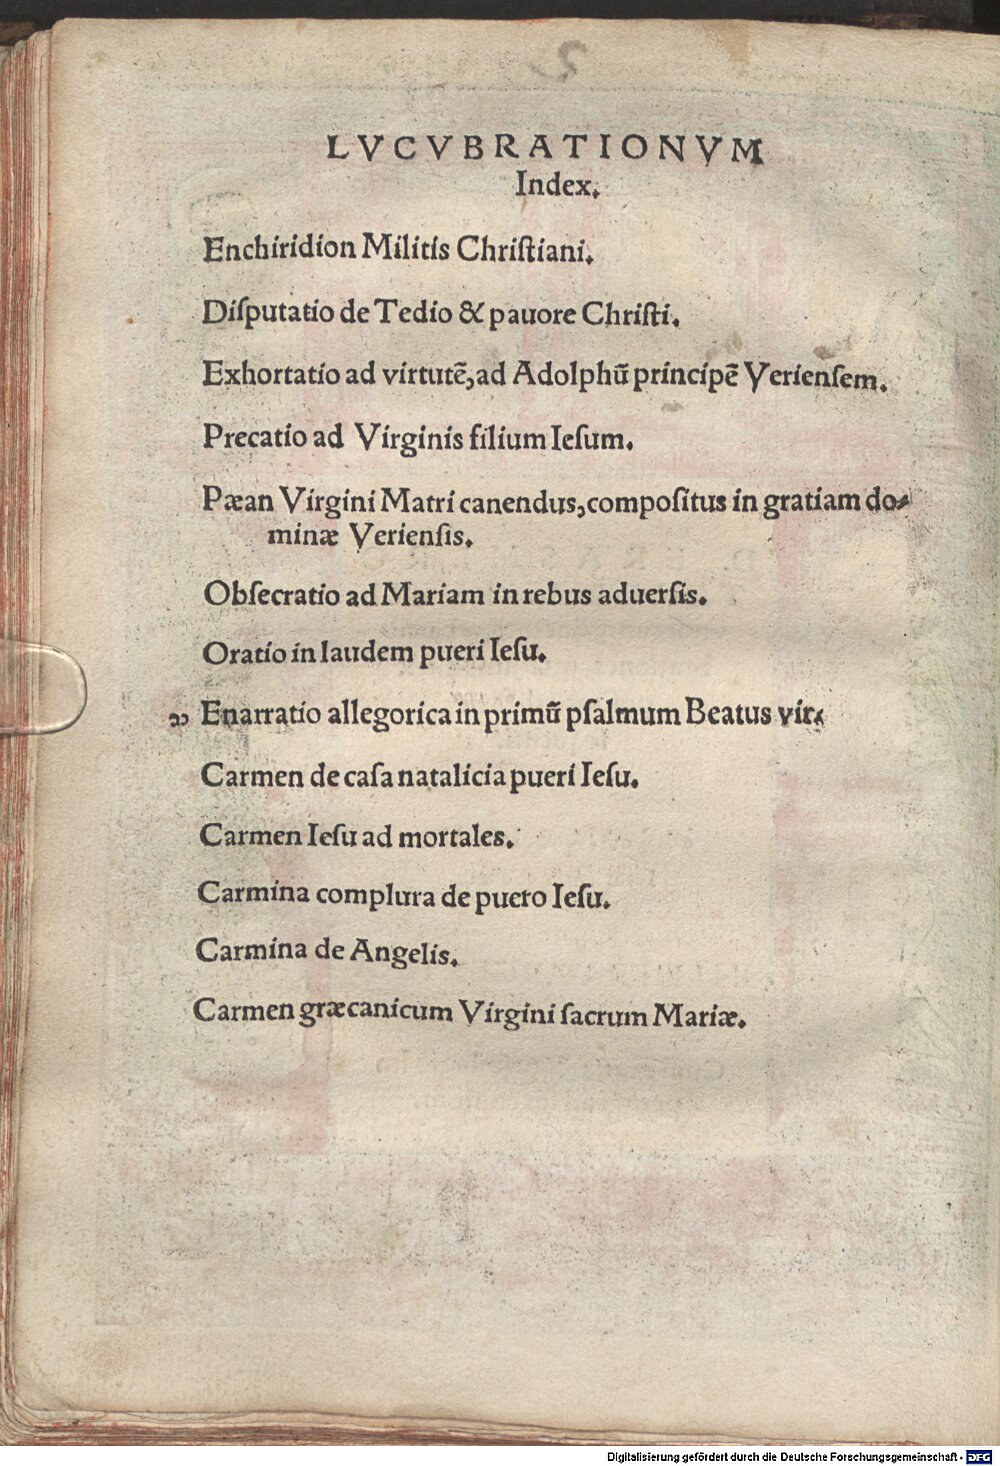 LVCVBRATIONVM
Index.
Enchiridion Militis Chriſtiani.
Diſputatio de Tedio & pauore Chriſti.
Exhortatio ad virtutē, ad Adolphū principē Verienſem.
Precatio ad Virginis filium Ieſum.
Pæan Virgini Matri canendus, compoſitus in gratiam do-
minæ Verienſis.
Obſecratio ad Mariam in rebus aduerſis.
Oratio in laudem pueri Ieſu.
Enarratio allegorica in primū pſalmum Beatus vir.
Carmen de caſa natalicia pueri Ieſu.
Carmen Ieſu ad mortales.
Carmina complura de puero Ieſu.
Carmina de Angelis.
Carmen græcanicum Virgini ſacrum Mariæ.
Digitalisierung gefördert durch die Deutsche Forschungsgemeinschaft - DFG